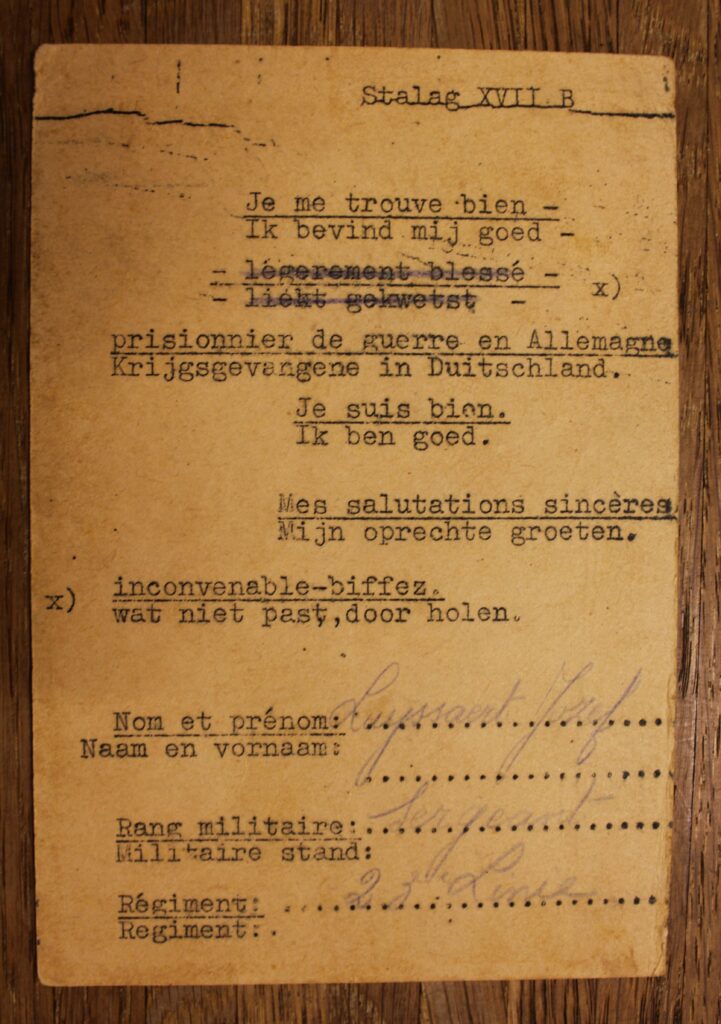 Stalag XVII B
Je me trouve bien -
Ik bevind mij goed -
- légerement blessé -
- liekt gekwetst -
x)
prisionnier de guerre en Allemagne
Krijgsgevangene in Duitschland.
Je suis bien.
Ik ben goed.
Mes salutations sincères
Mijn oprechte groeten.
x) inconvenable-biffez.
wat niet past,door holen.
Nom et prénom: Luyssaert Jozef
Naam en vornaam:
Rang militaire: Sergeant
Militaire stand:
Régiment: 23e Linie
Regiment:.